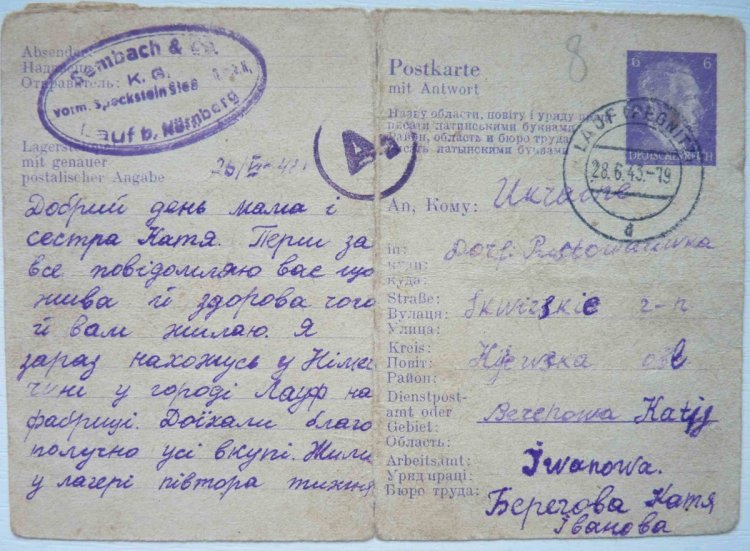 Absender:
Sembach & Co.
K. G.
vorm. Speckstein
Lauf b. Nürnberg
Отправитель:
Lagerst
mit genauer
postalischer Angabe
Добрий день мама і
сестра Катя. Перш за
все повідомляю вас що
жива й здорова чого
й вам жилаю. Я
зараз нахожусь у Німе
чині у городі Лауф на
фабриці. Доїхали благо
получно усі вкупі. Жили
у лагері півтора тижня
8
Postkarte
mit Antwort
Назву области, повіту і уряду
писати латинськими буквами
Район, область и бюро труда
писать латынскими буквами
6 6
DEUTSCHES REICH
LAUF (PEGNITZ)
28.6.43.-19
d
An, Кому: Ukraine
in: Dorf.
куди:
куда:
Straße: Skwirskie r-n
Вулиця:
Улица:
Kreis: Kijewska obl
Повіт:
Район:
Dienstpost-
amt oder Berehowa Katja
Gebiet:
Область:
Arbeitsamt: Iwanowa.
Уряд праці:
Бюро труда: Берегова Катя
Іванова